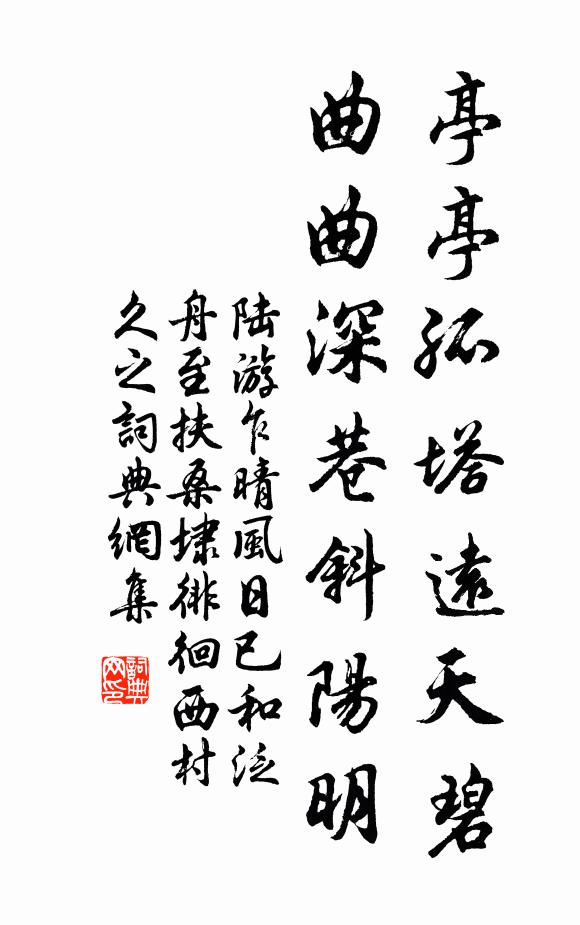 亭亭孤塔遠天碧
曲曲深巷斜陽明
陆游乍晴風日已和泛
舟至扶桑埭徘徊西村
久之詞典網集
詞典网印